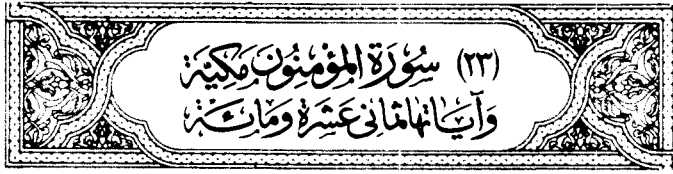 (٢٣) سُورَةُ المؤمِنُونَ مَكيَّة
وَآيَاتها ثمانى عَشرة وَمائة